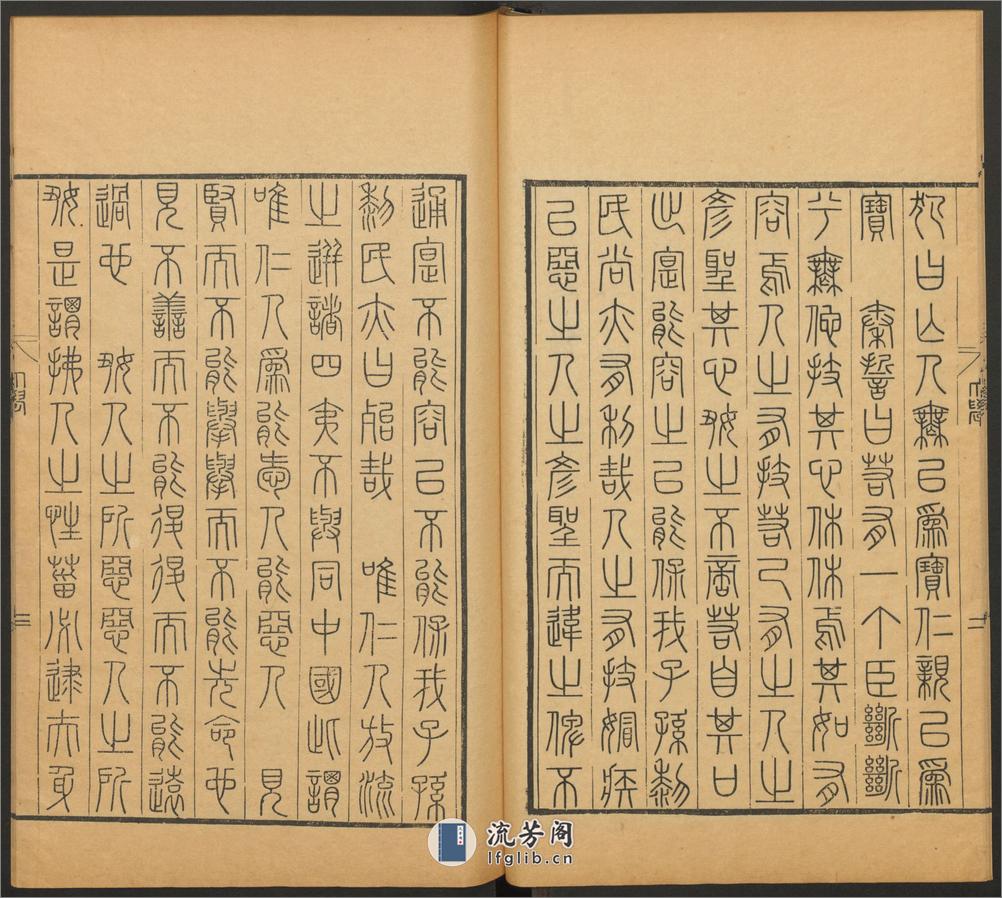 犯曰亡人無以為寶仁親以為
寶 秦誓曰若有一个臣斷斷
兮無他技其心休休焉其如有
容焉人之有技若己有之人之
彥聖其心好之不啻若自其口
出寔能容之以能保我子孫黎
民尚亦有利哉人之有技媢疾
以惡之人之彥聖而違之俾不
通寔不能容以不能保我子孫
黎民亦曰殆哉 唯仁人放流
之迸諸四夷不與同中國此謂
唯仁人為能愛人能惡人 見
賢而不能舉舉而不能先命也
見不善而不能退退而不能遠
過也 好人之所惡惡人之所
好是謂拂人之性菑必逮夫身
大學
流芳阁
lfglib.cn